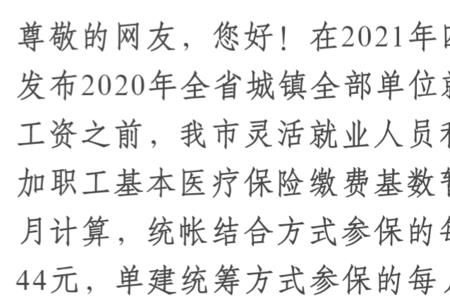 尊敬的网友，您好！在2021年四
发布2020年全省城镇全部单位就
工资之前，我市灵活就业人员和
加职工基本医疗保险缴费基数暂
月计算，统帐结合方式参保的每
44元，单建统筹方式参保的每月